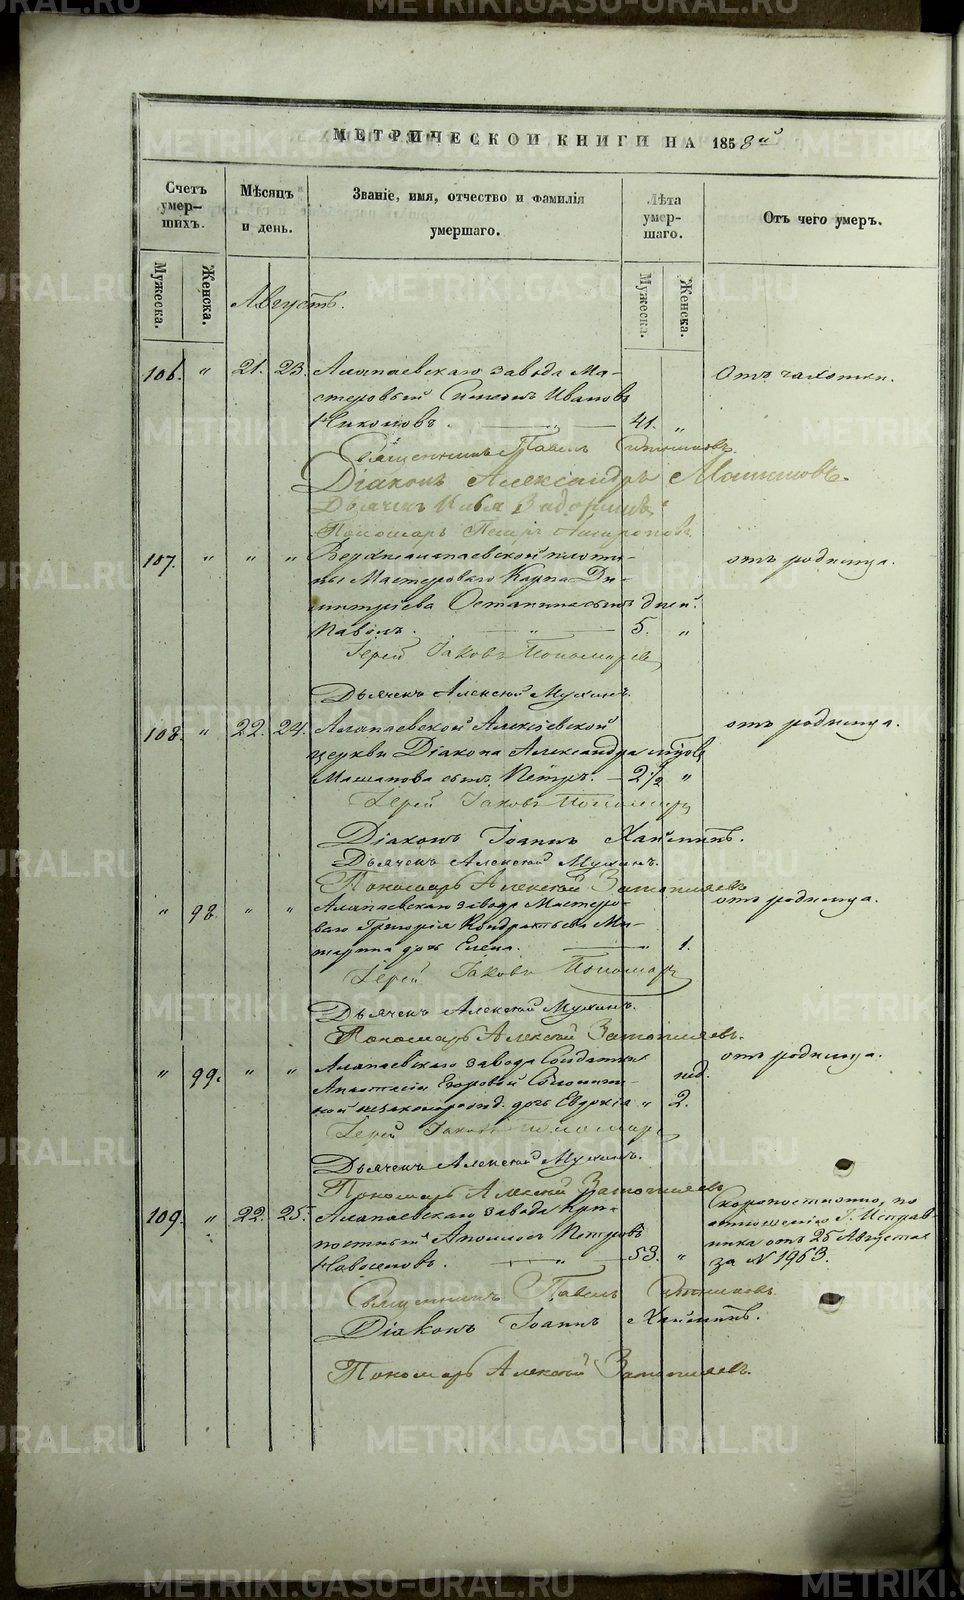 METRIKI.GASO-URAL.RU
МЕТРИЧЕСКОЙ КНИГИ НА 1858й
Счетъ умер-шихъ.
Мѣсяцъ и день.
Званіе, имя, отчество и фамилія умершаго.
Лѣта умер-шаго.
Отъ чего умеръ.
Мужеска.
Женска.
Мужеска.
Женска.
Августъ.
106. " 21. 23. Алапаевскаго завода Ма- Отъ чахотки.
стеровый Симеонъ Ивановъ
Никоновъ. 41. "
Священникъ Павелъ
Діаконъ Александръ Машановъ.
Дьячекъ Илья
Пономарь Петръ
107. " " " Верхнеалапаевской плоти- отъ родимца.
ны Мастероваго Карпа Ди-
митріева Останина сынъ дней.
Павелъ. 5. "
Іерей Іаковъ Пономаревъ
Дьячекъ Алексѣй Мухинъ.
108. " 22. 24. Алапаевской Алексіевской отъ родимца.
церкви Діакона Александра
Машанова сынъ Петръ. 2½ "
Іерей Іаковъ Пономаревъ
Діаконъ Іоаннъ
Дьячекъ Алексѣй Мухинъ.
Пономарь Алексѣй Затопляевъ
" 98. " " Алапаевскаго завода Мастеро- отъ родимца.
ваго Григорія Кондратьева Ми-
дочь Елена. " 1.
Іерей Іаковъ Пономаревъ
Дьячекъ Алексѣй Мухинъ.
Пономарь Алексѣй Затопляевъ.
" 99. " " Алапаевскаго завода Солдатки отъ родимца.
Анастасіи Егоровой нед.
незаконорожд. дочь Евдокія " 2.
Іерей Іаковъ Пономаревъ
Дьячекъ Алексѣй Мухинъ.
Пономарь Алексѣй Затопляевъ
109. " 22. 25. Алапаевскаго завода Крѣ- Скоропостижно, по
постный Петровъ отношенію Г. Исправ-
Новоселовъ. 53. " ника отъ 25 Августа
за № 1963.
Священникъ Павелъ
Діаконъ Іоаннъ
Пономарь Алексѣй Затопляевъ.